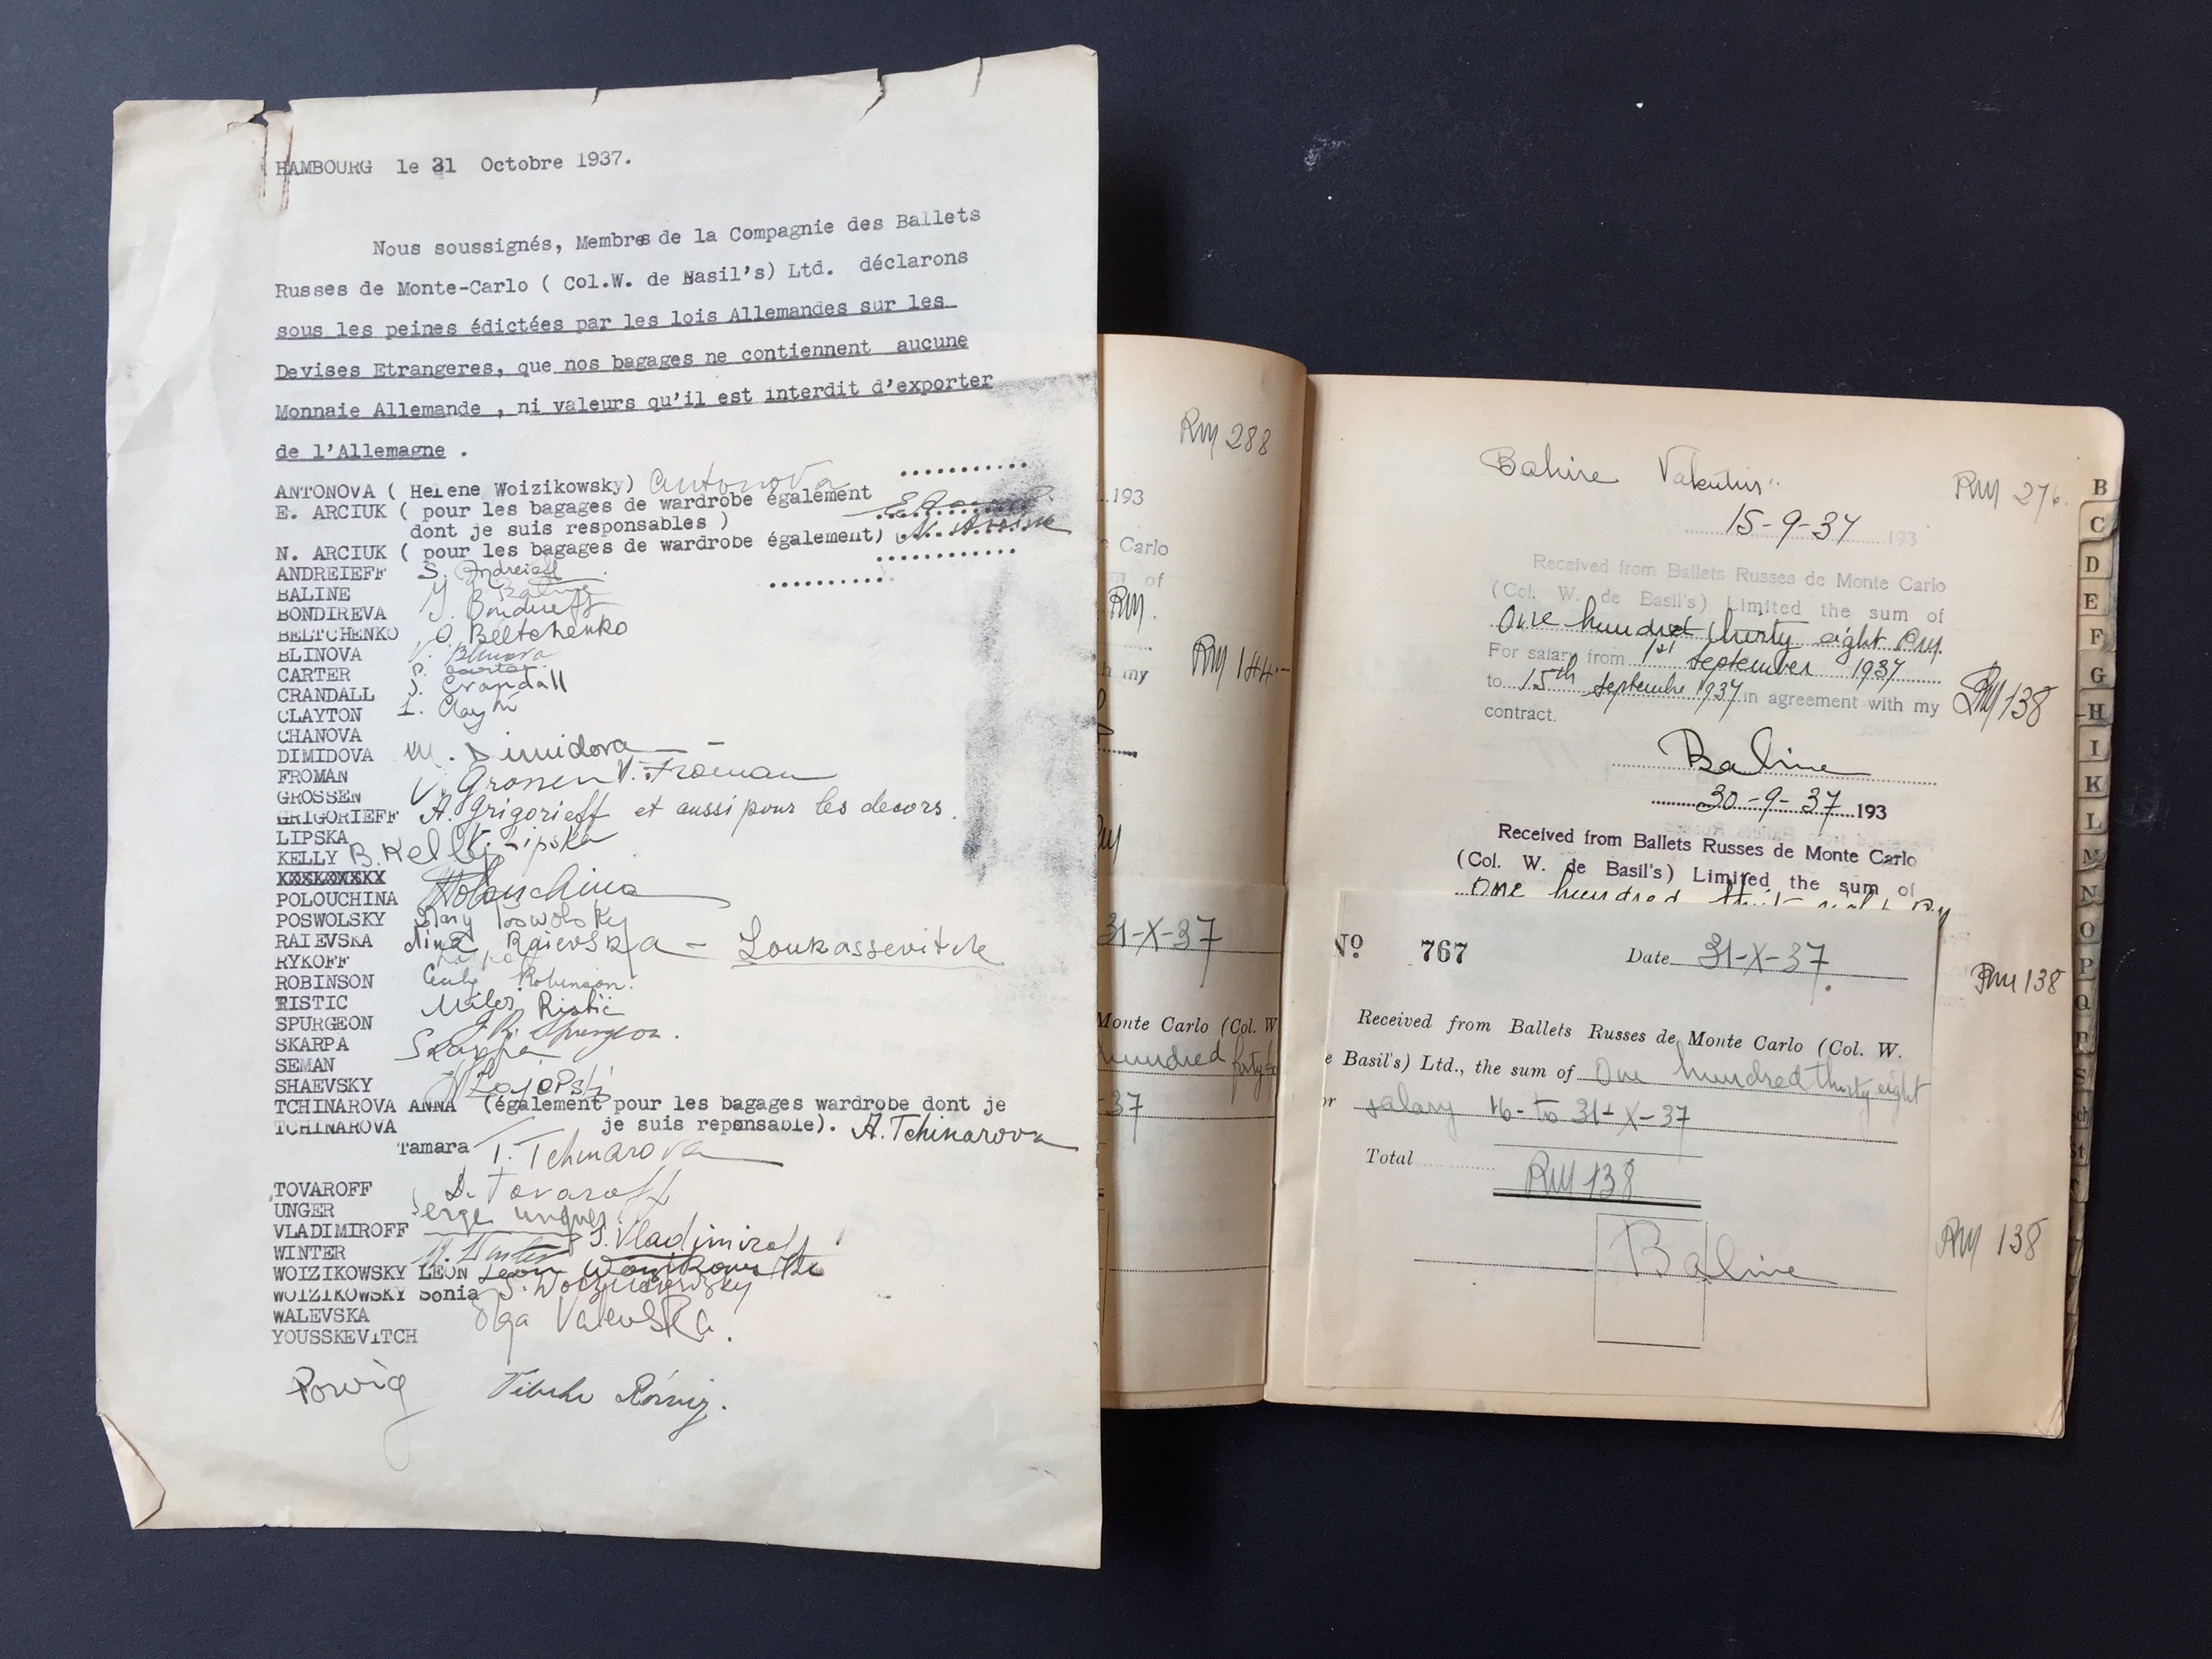 HAMBOURG le 31 Octobre 1937.
Nous soussignés, Membres de la Compagnie des Ballets
Russes de Monte-Carlo ( Col.W. de Basil's) Ltd. déclarons
sous les peines édictées par les lois Allemandes sur les
Devises Etrangeres, que nos bagages ne contiennent aucune
Monnaie Allemande , ni valeurs qu'il est interdit d'exporter
de l'Allemagne .
ANTONOVA ( Helene Woizikowsky) Antonova ...........
E. ARCIUK ( pour les bagages de wardrobe également
dont je suis responsables )
N. ARCIUK ( pour les bagages de wardrobe également)
ANDREIEFF S. Andreieff
BALINE Baline
BONDIREVA
BELTCHENKO O. Beltchenko
BLINOVA Blinova
CARTER Carter
CRANDALL J. Crandall
CLAYTON
CHANOVA
DIMIDOVA M. Dimidova
FROMAN V. Froman
GROSSEN Grossen
GRIGORIEFF A. Grigorieff et aussi pour les decors.
LIPSKA Lipska
KELLY B. Kelly
KOSLOWSKY
POLOUCHINA Polouchina
POSWOLSKY Mary Poswolsky
RAIEVSKA Nina Raievska - Loukassevitch
RYKOFF
ROBINSON Robinson.
RISTIC Milos Ristić
SPURGEON Spurgeon.
SKARPA Skarpa
SEMAN
SHAEVSKY
TCHINAROVA ANNA (également pour les bagages wardrobe dont je
je suis reponsable). A. Tchinarova
TCHINAROVA
Tamara T. Tchinarova
TOVAROFF D. Tovaroff
UNGER Serge Unguer
VLADIMIROFF Vladimiroff
WINTER
WOIZIKOWSKY LEON Leon
WOIZIKOWSKY Sonia S.
WALEVSKA Olga Valevska.
YOUSSKEVITCH
Rm 288
193
Carlo
of
Rm.
my
Rm 144.-
31-X-37
Monte Carlo (Col. W
hundred
37
Baline
Rm 276.
15-9-37 193
Received from Ballets Russes de Monte Carlo
(Col. W. de Basil's) Limited the sum of
One hundred thirty eight Rm.
For salary from 1st September 1937
to 15th Septembre 1937 in agreement with my
contract.
Rm 138
Baline
30-9-37 193
Received from Ballets Russes de Monte Carlo
(Col. W. de Basil's) Limited the sum of
One hundred
Rm 138
No 767 Date 31-X-37.
Received from Ballets Russes de Monte Carlo (Col. W.
e Basil's) Ltd., the sum of One hundred thirty eight
or salary 16- to 31-X-37
Total Rm 138
Baline
Rm 138
B
C
D
E
F
G
H
I
K
L
M
N
O
P
Q
R
S
Sch
St